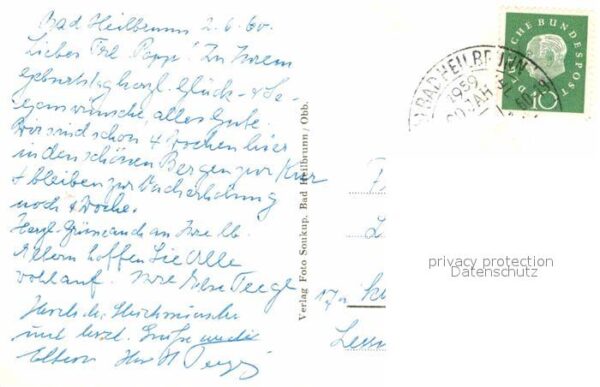 Bad Heilbrunn 2.6.60.
Liebes Frl. Popp! Zu Ihrem
Geburtstag herzl. Glück- & Se-
genswünsche, alles Gute.
Wir sind schon 4 Wochen hier
in den schönen Bergen zur Kur
& bleiben zur Nacherholung
noch 1 Woche.
Herzl. Grüße auch an Ihre lb.
Eltern hoffen Sie Alle
wohlauf. Ihre
Herzliche Glückwünsche
und herzl. Grüße an die
Eltern Ihr
Verlag Foto Soukup, Bad Heilbrunn / Obb.
DEUTSCHE BUNDESPOST
10
BAD HEILBRUNN
1959
privacy protection
Datenschutz